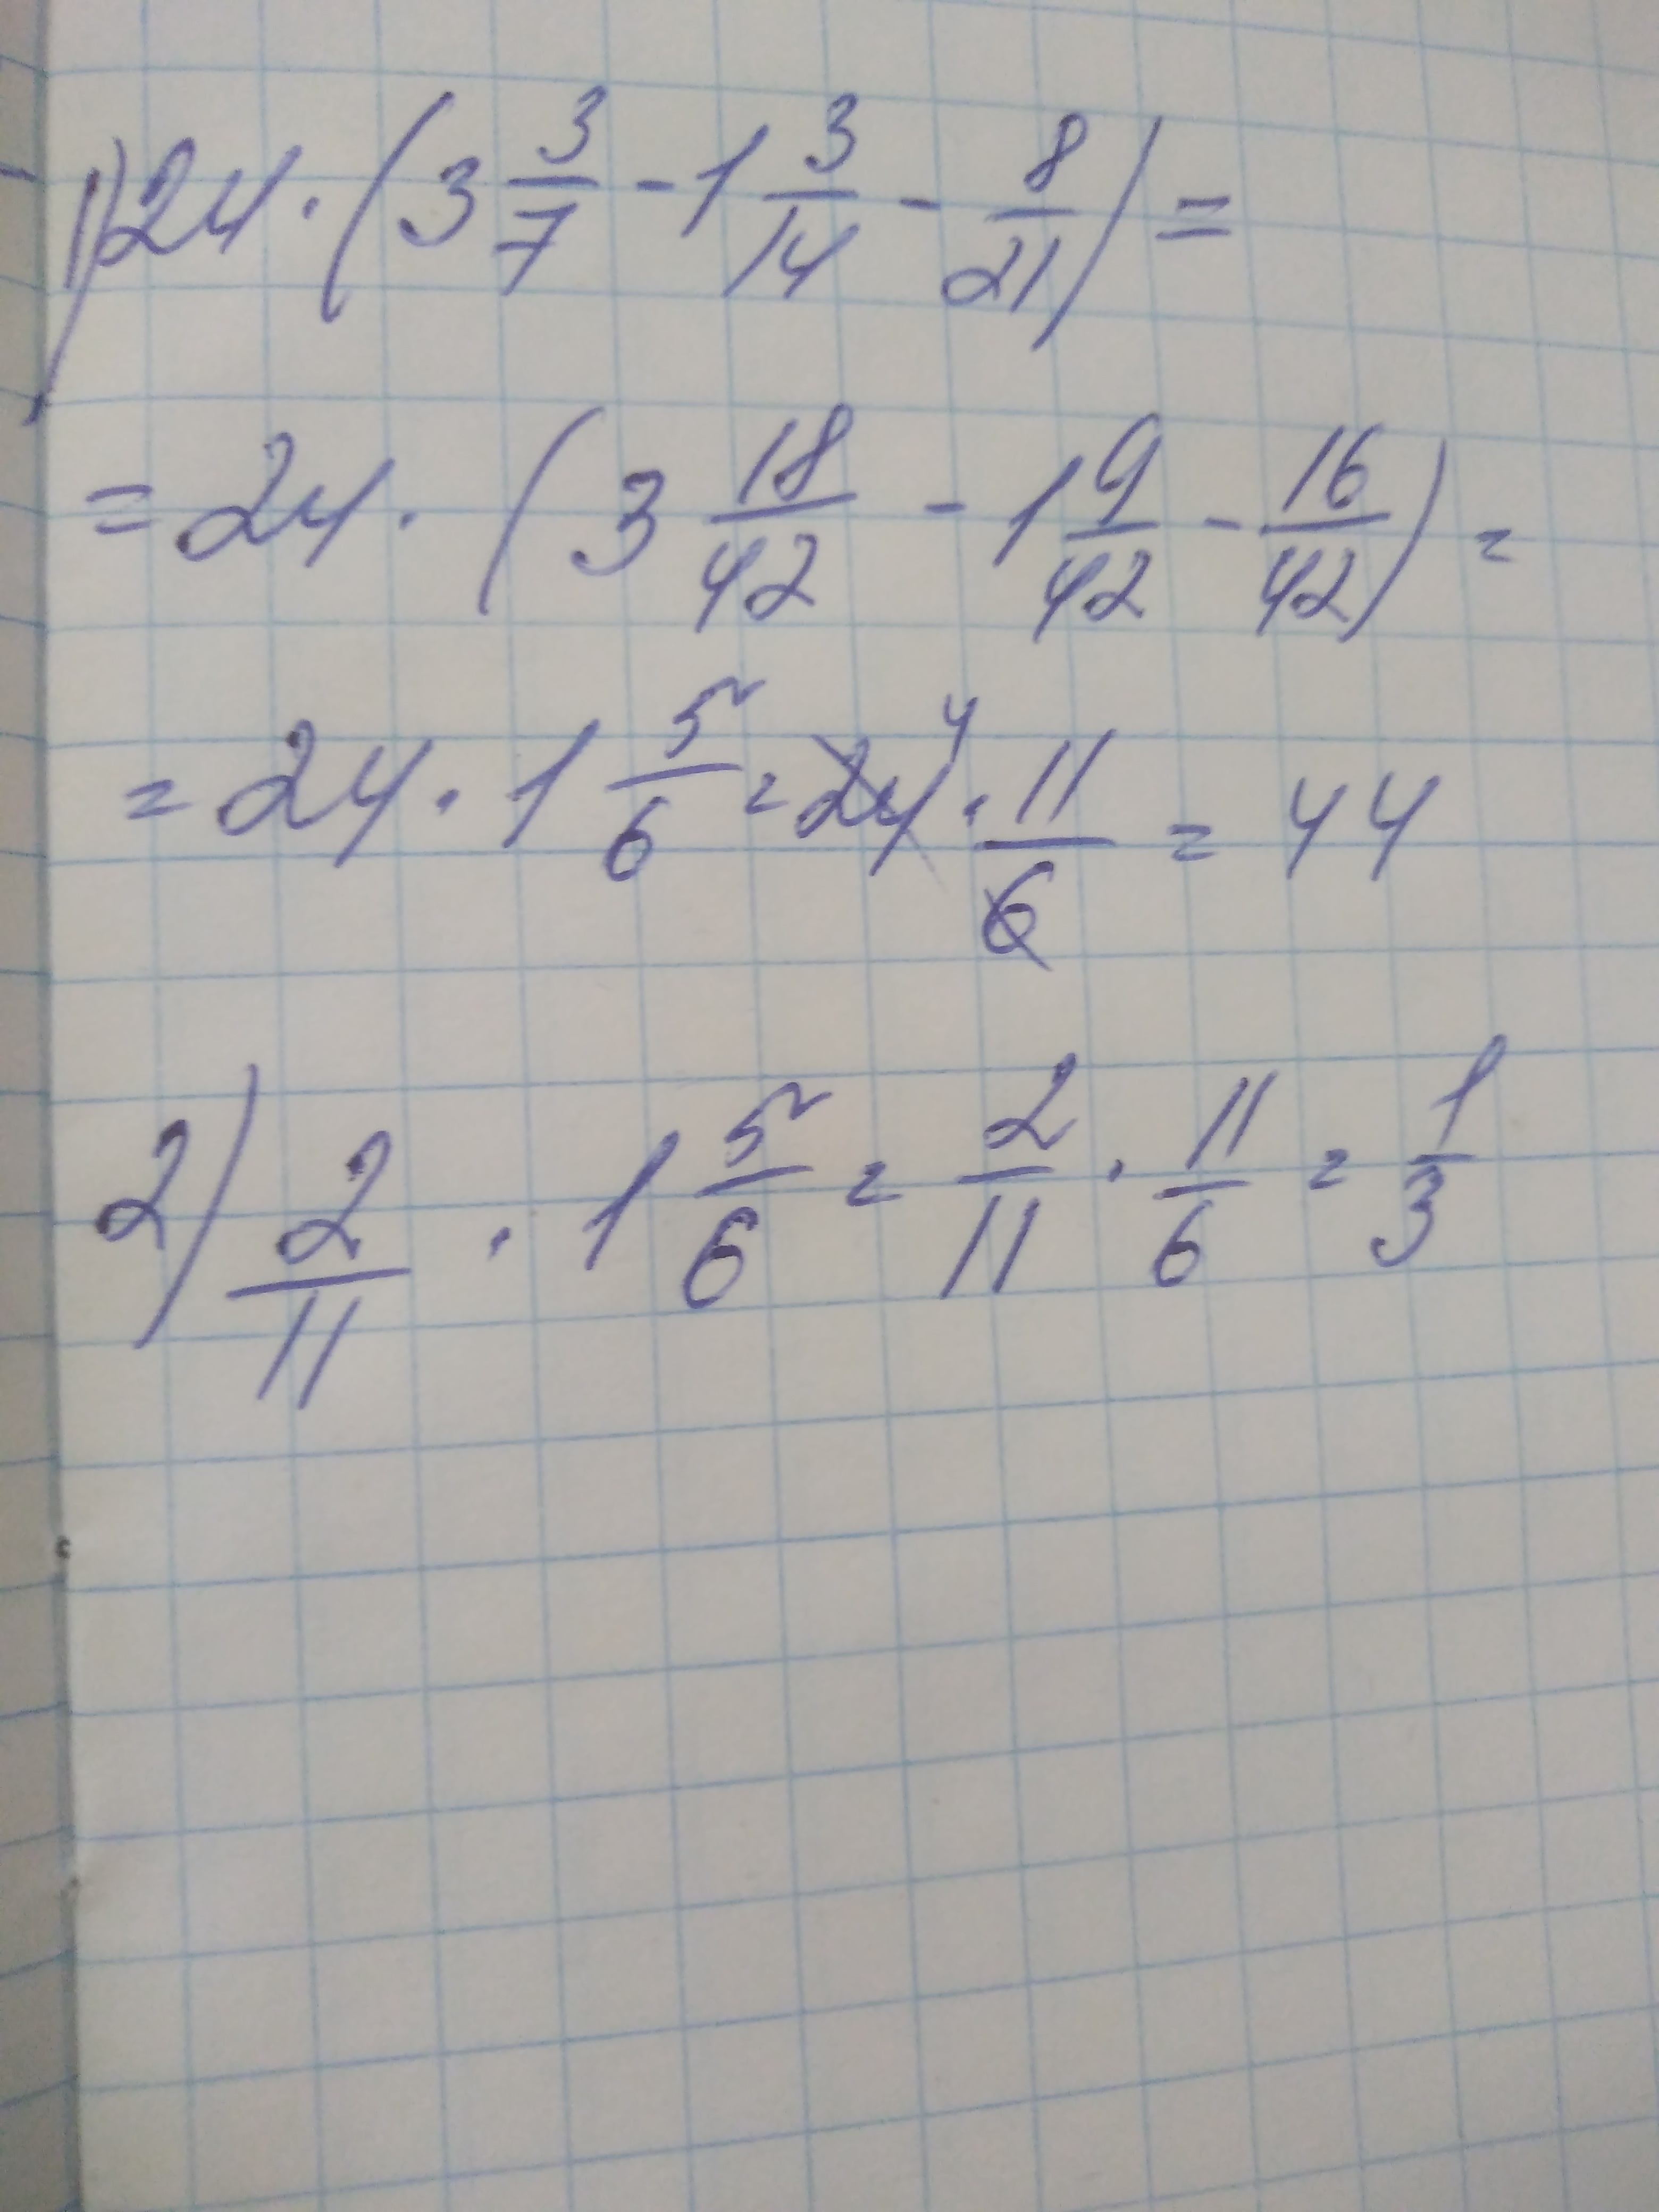 1) 24 · (3 3/7 - 1 3/14 - 8/21) =
= 24 · (3 18/42 - 1 9/42 - 16/42) =
= 24 · 1 5/6 = 24 4 · 11/6 = 44
2) 2/11 · 1 5/6 = 2/11 · 11/6 = 1/3